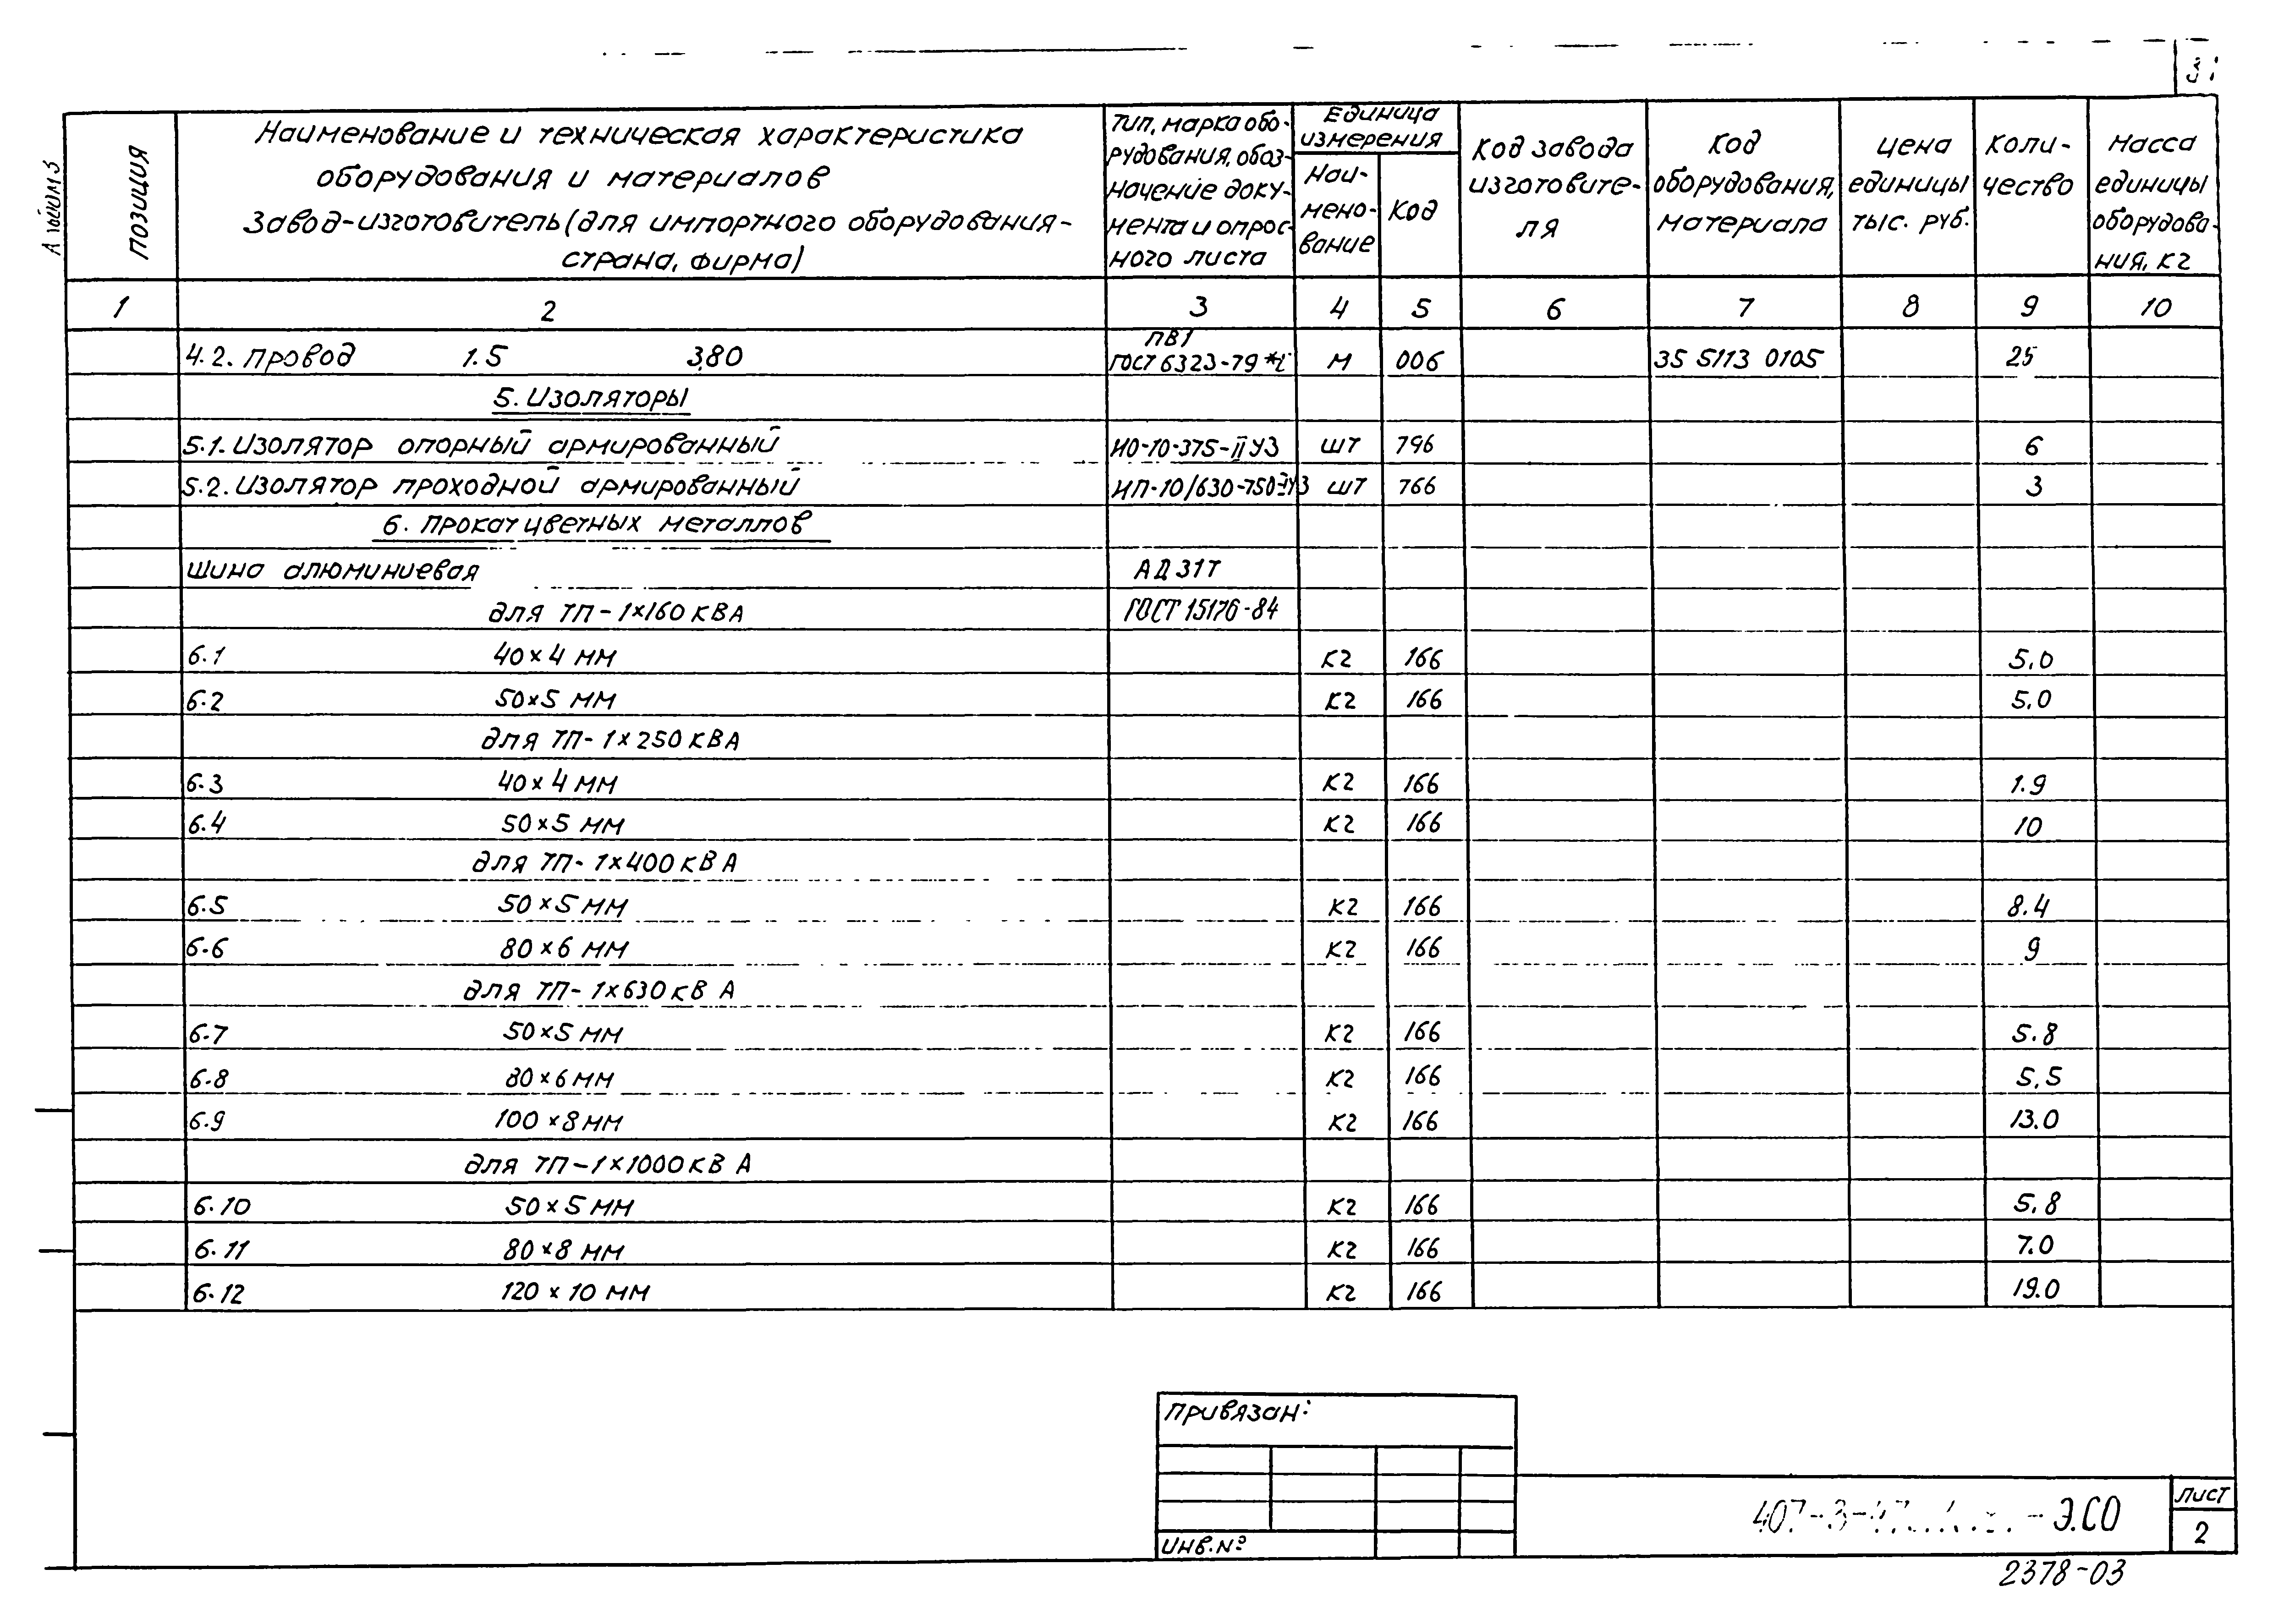 Альбом 3
3
позиция
Наименование и техническая характеристика
оборудования и материалов
Завод-изготовитель (для импортного оборудования-
страна, фирма)
Тип, марка обо-
рудования, обоз-
начение доку-
мента и опрос-
ного листа
Единица
измерения
Наи-
мено-
вание
Код
Код завода
изготовите-
ля
Код
оборудования,
материала
цена
единицы
тыс. руб.
Коли-
чество
Масса
единицы
оборудова-
ния, кг
1 2 3 4 5 6 7 8 9 10
ПВ1
4.2. Провод 1.5 380 ГОСТ 6323-79 м 006 35 5113 0105 25
5. Изоляторы
5.1. Изолятор опорный армированный ИО-10-375-II У3 шт 796 6
5.2. Изолятор проходной армированный ИП-10/630-750-II У3 шт 766 3
6. Прокат цветных металлов
Шина алюминиевая АД 31Т
для ТП-1×160 кВА ГОСТ 15176-84
6.1 40×4 мм кг 166 5.0
6.2 50×5 мм кг 166 5.0
для ТП-1×250 кВА
6.3 40×4 мм кг 166 1.9
6.4 50×5 мм кг 166 10
для ТП-1×400 кВА
6.5 50×5 мм кг 166 8.4
6.6 80×6 мм кг 166 9
для ТП-1×630 кВА
6.7 50×5 мм кг 166 5.8
6.8 80×6 мм кг 166 5.5
6.9 100×8 мм кг 166 13.0
для ТП-1×1000 кВА
6.10 50×5 мм кг 166 5.8
6.11 80×8 мм кг 166 7.0
6.12 120×10 мм кг 166 19.0
Привязан:
Инв.№
407-3- -Э.СО
лист
2
2378-03